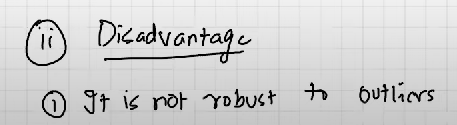 ii Disadvantage
① It is not robust to outliers